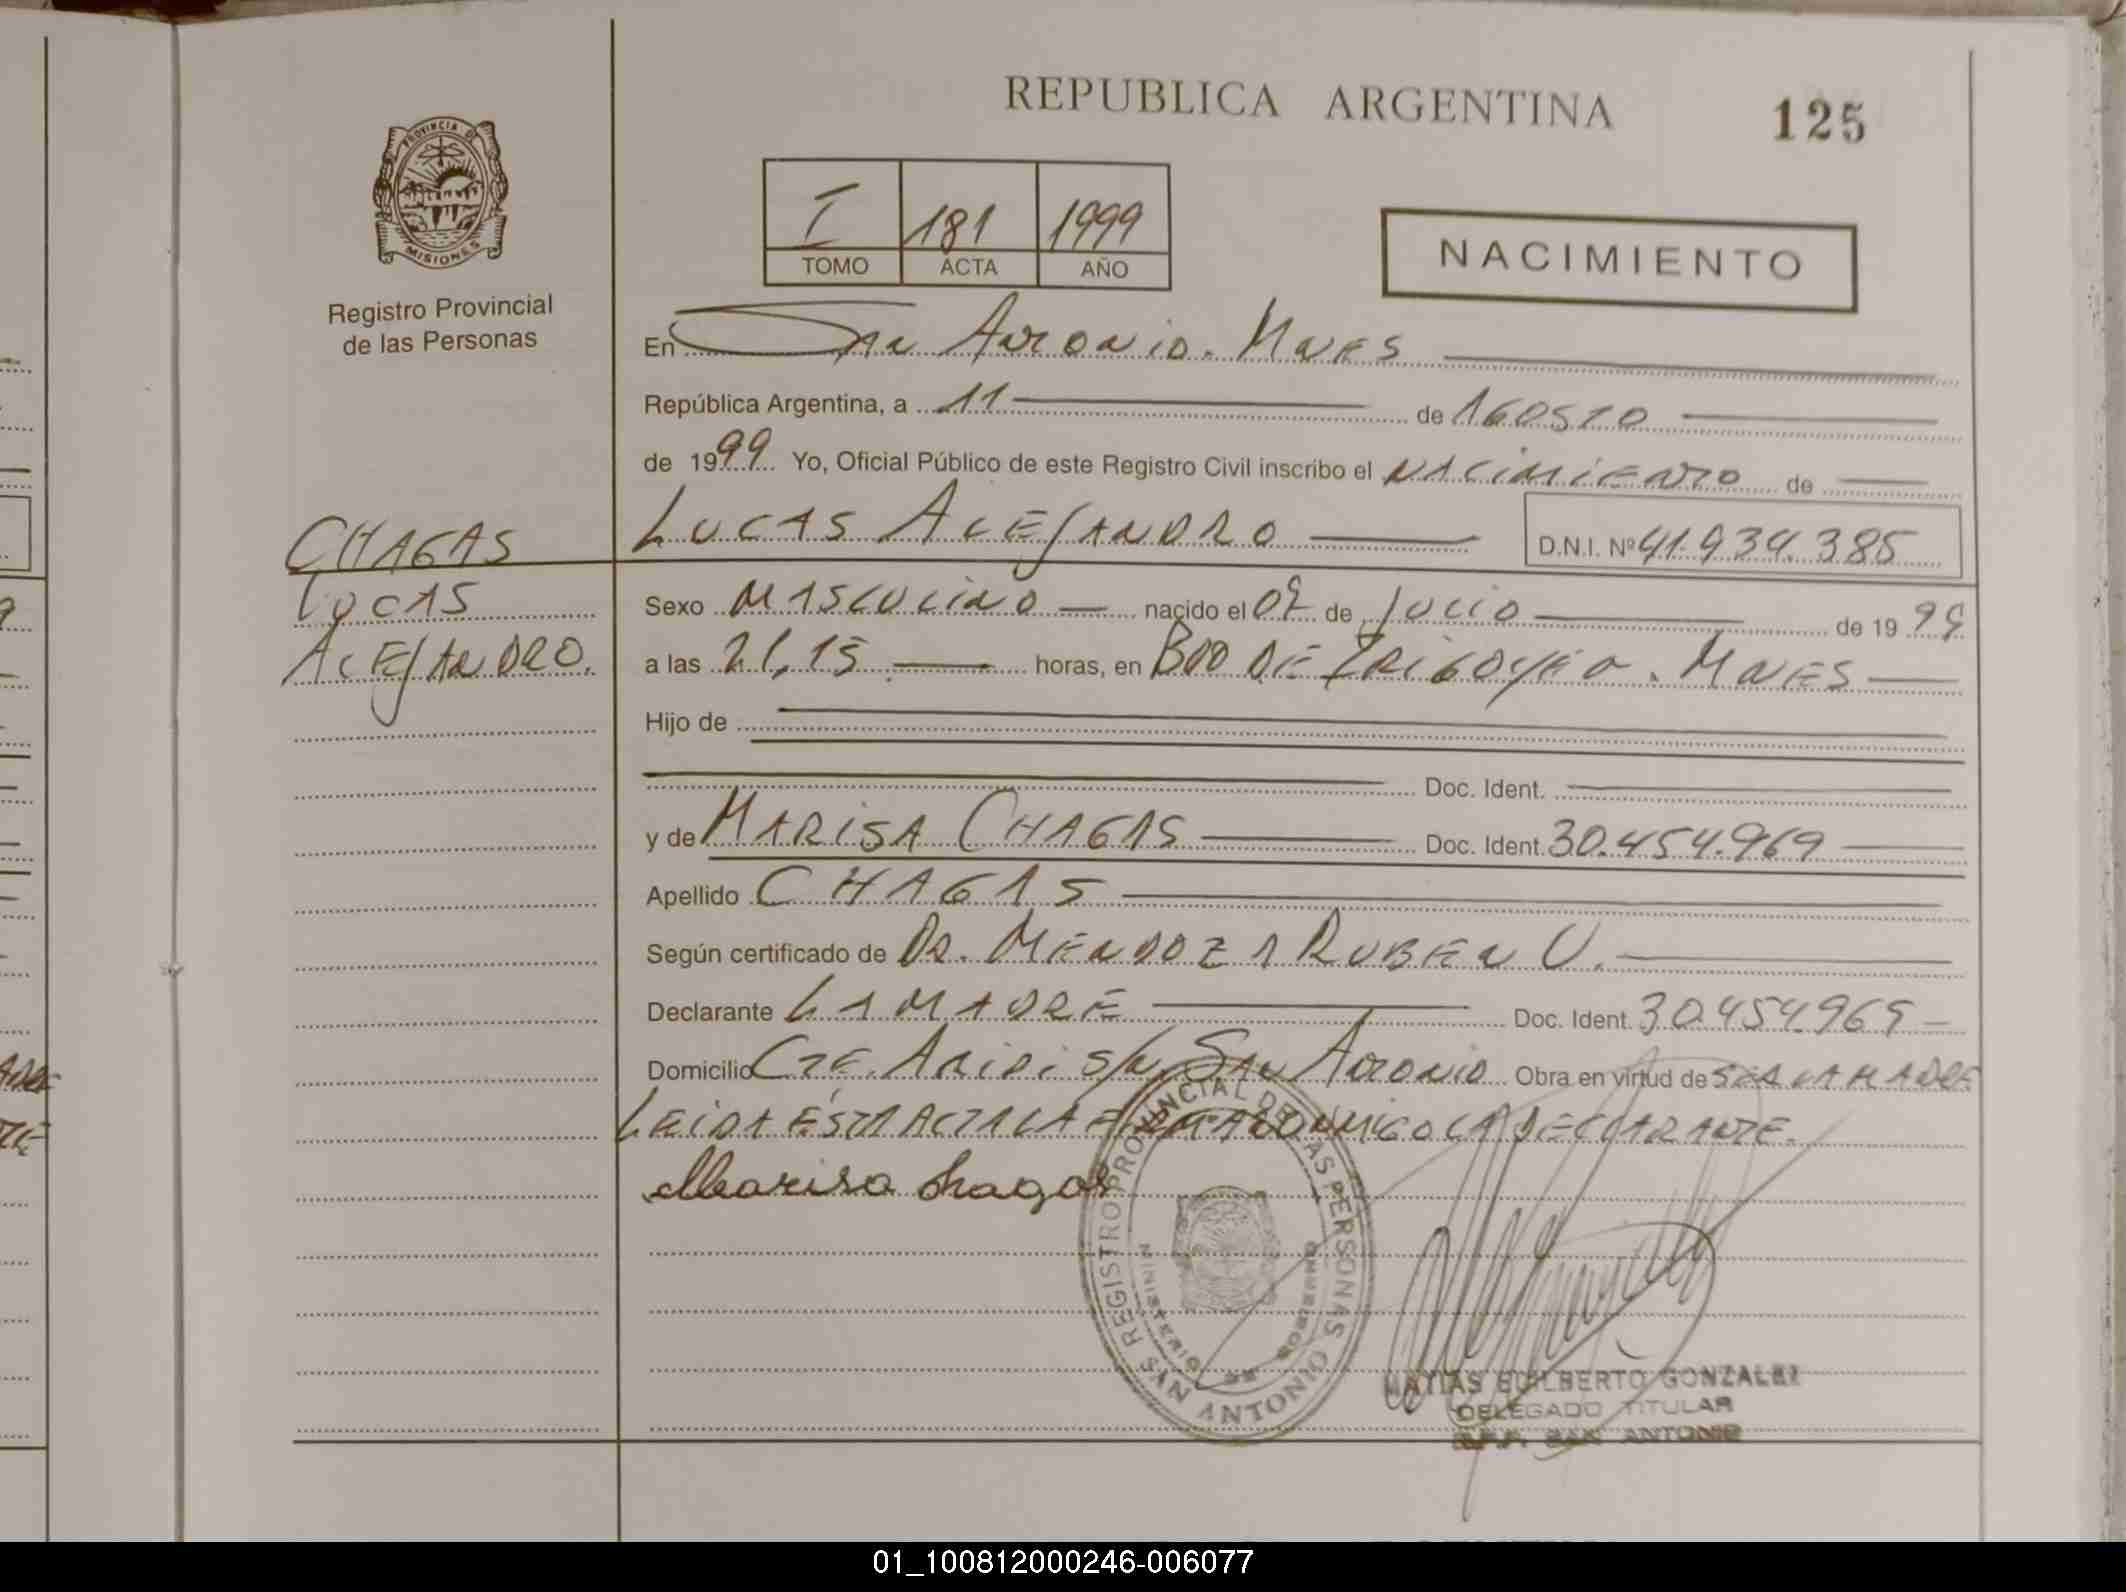 REPUBLICA ARGENTINA
125
PROVINCIA DE
MISIONES
Registro Provincial
de las Personas
I 181 1999
TOMO ACTA AÑO
NACIMIENTO
En San Antonio. Mnes
República Argentina, a 11 de Agosto
de 1999 Yo, Oficial Público de este Registro Civil inscribo el NACIMIENTO de
LUCAS ALEJANDRO D.N.I. Nº 41.934.385
CHAGAS
LUCAS
ALEJANDRO.
Sexo MASCULINO nacido el 09 de Julio de 1999
a las 21,15 horas, en BDO DE IRIGOYEN. MNES
Hijo de
Doc. Ident.
y de MARISA CHAGAS Doc. Ident. 30.454.969
Apellido CHAGAS
Según certificado de DR. MENDOZA RUBEN U.
Declarante LA MADRE Doc. Ident. 30.454.969
Domicilio CTE. ARIDI S/N SAN ANTONIO Obra en virtud de SER LA MADRE
LEIDA ESTA ACTA LA FIRMA CONMIGO LA DECLARANTE.
Marisa Chagas
REGISTRO PROVINCIAL DE LAS PERSONAS
MINISTERIO DE GOBIERNO
SAN ANTONIO
MATIAS EDILBERTO GONZALEZ
DELEGADO TITULAR
R.P.P. SAN ANTONIO
01_100812000246-006077